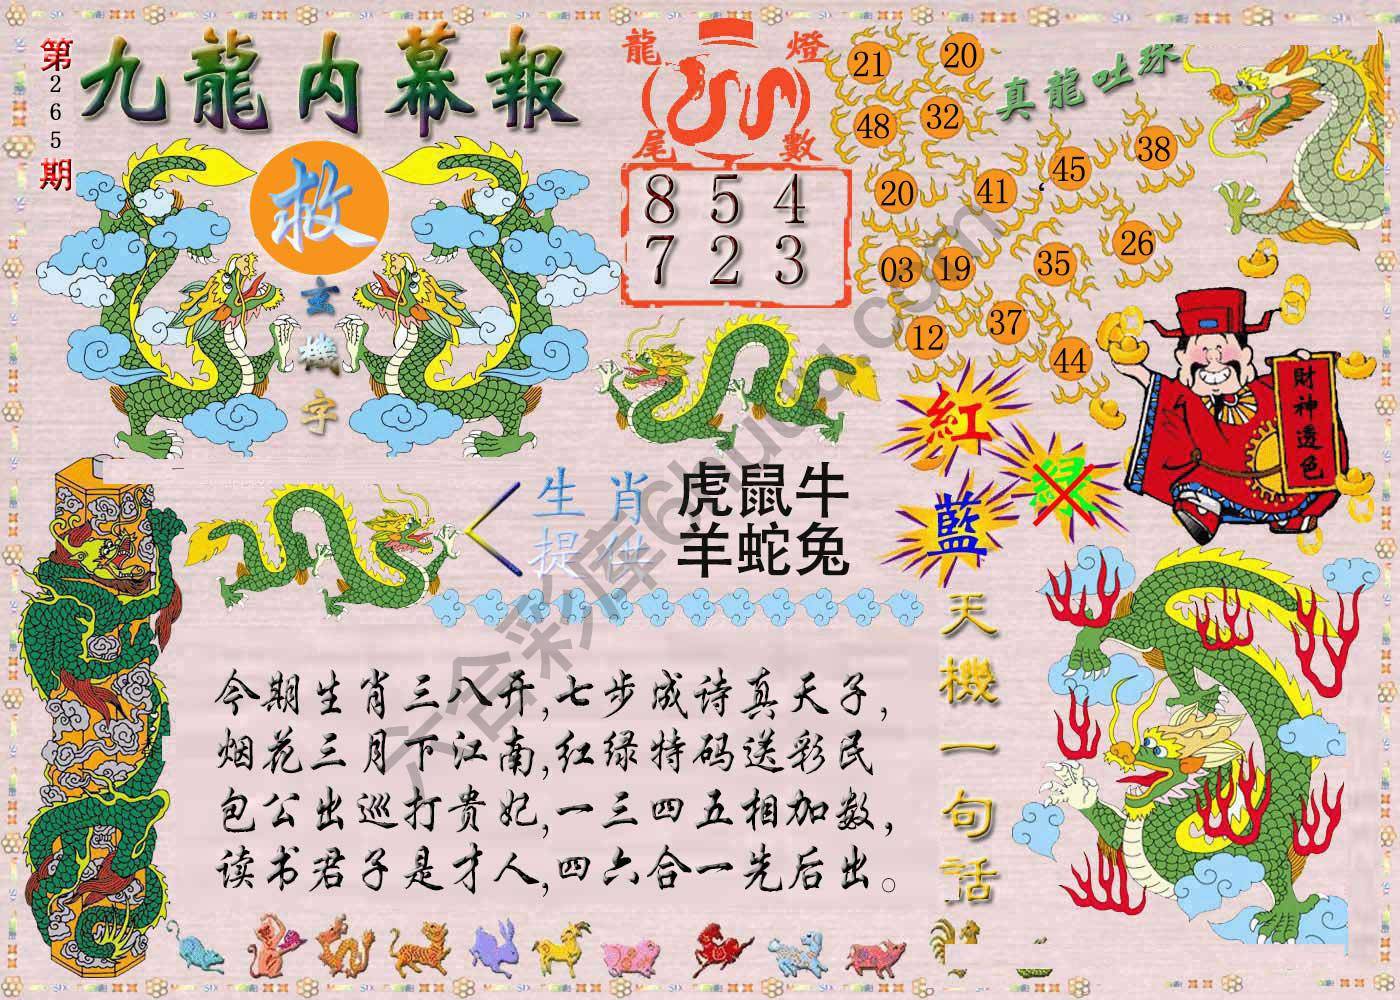 第265期
九龍内幕報
救
玄機字
龍燈尾數
8 5 4
7 2 3
真龍吐珠
21 20
48 32
45 38
20 41
26
03 19 35
12 37
44
財神透色
紅
綠
藍
生肖提供
虎鼠牛
羊蛇兔
天機一句話
今期生肖三八开,七步成诗真天子,
烟花三月下江南,红绿特码送彩民
包公出巡打贵妃,一三四五相加数,
读书君子是才人,四六合一先后出。
六合彩库6huuu.com